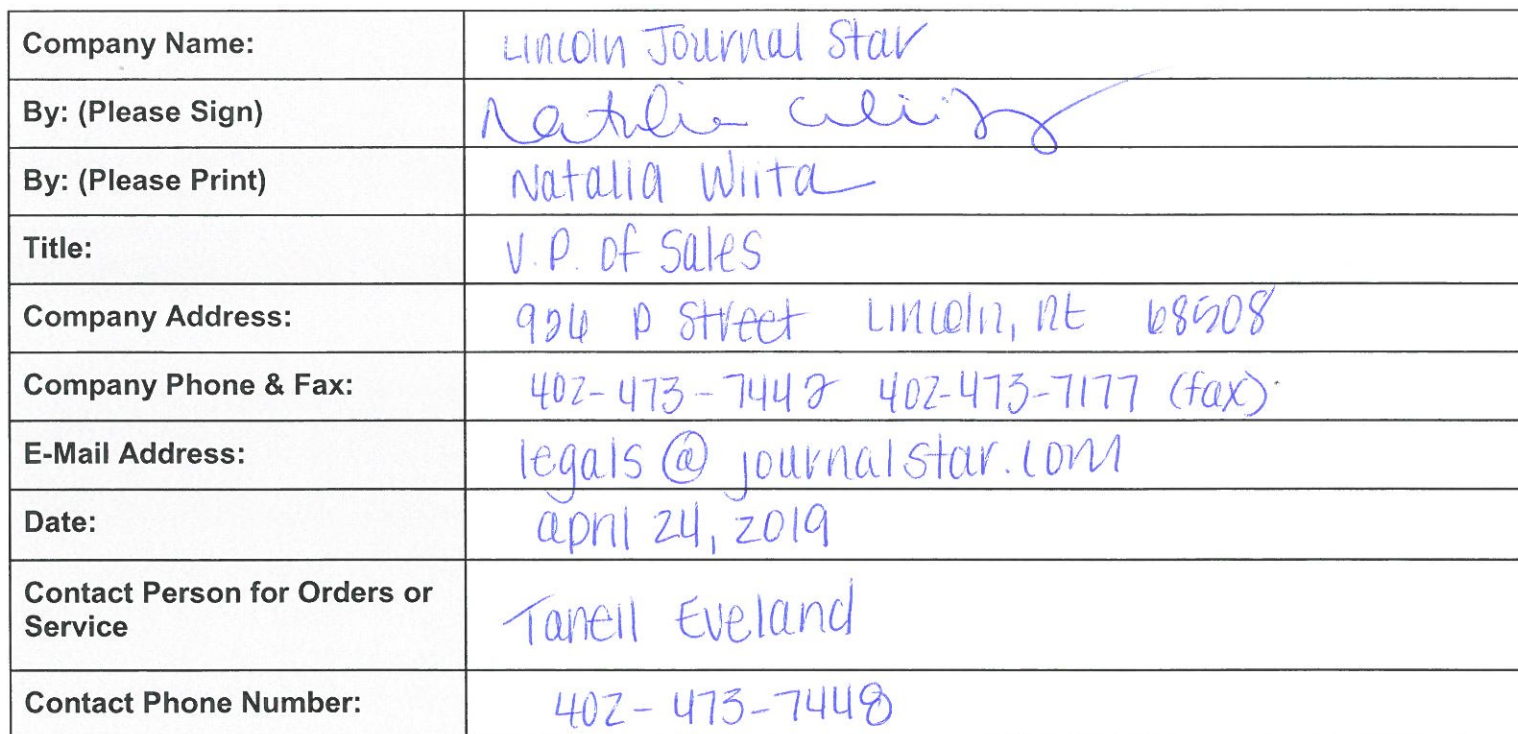 Company Name: Lincoln Journal Star
By: (Please Sign) Natalia Wiita
By: (Please Print) Natalia Wiita
Title: V.P. of Sales
Company Address: 926 P Street Lincoln, NE 68508
Company Phone & Fax: 402-473-7448 402-473-7177 (fax)
E-Mail Address: legals@journalstar.com
Date: april 24, 2019
Contact Person for Orders or
Service Tanell Eveland
Contact Phone Number: 402-473-7448